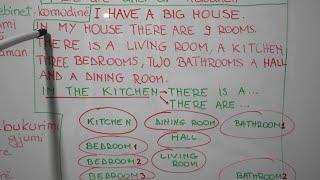 binet. komodinë
I HAVE A BIG HOUSE.
IN MY HOUSE THERE ARE 9 ROOMS.
THERE IS A LIVING ROOM, A KITCHEN
THREE BEDROOMS, TWO BATHROOMS A HALL
AND A DINING ROOM.
IN THE KITCHEN → THERE IS A ...
→ THERE ARE ...
bukurimi
gjumi
KITCHEN
DINING ROOM
BATHROOM 1
HALL
BEDROOM 1
BEDROOM 2
LIVING ROOM
BEDROOM 3
BATHROOM 2